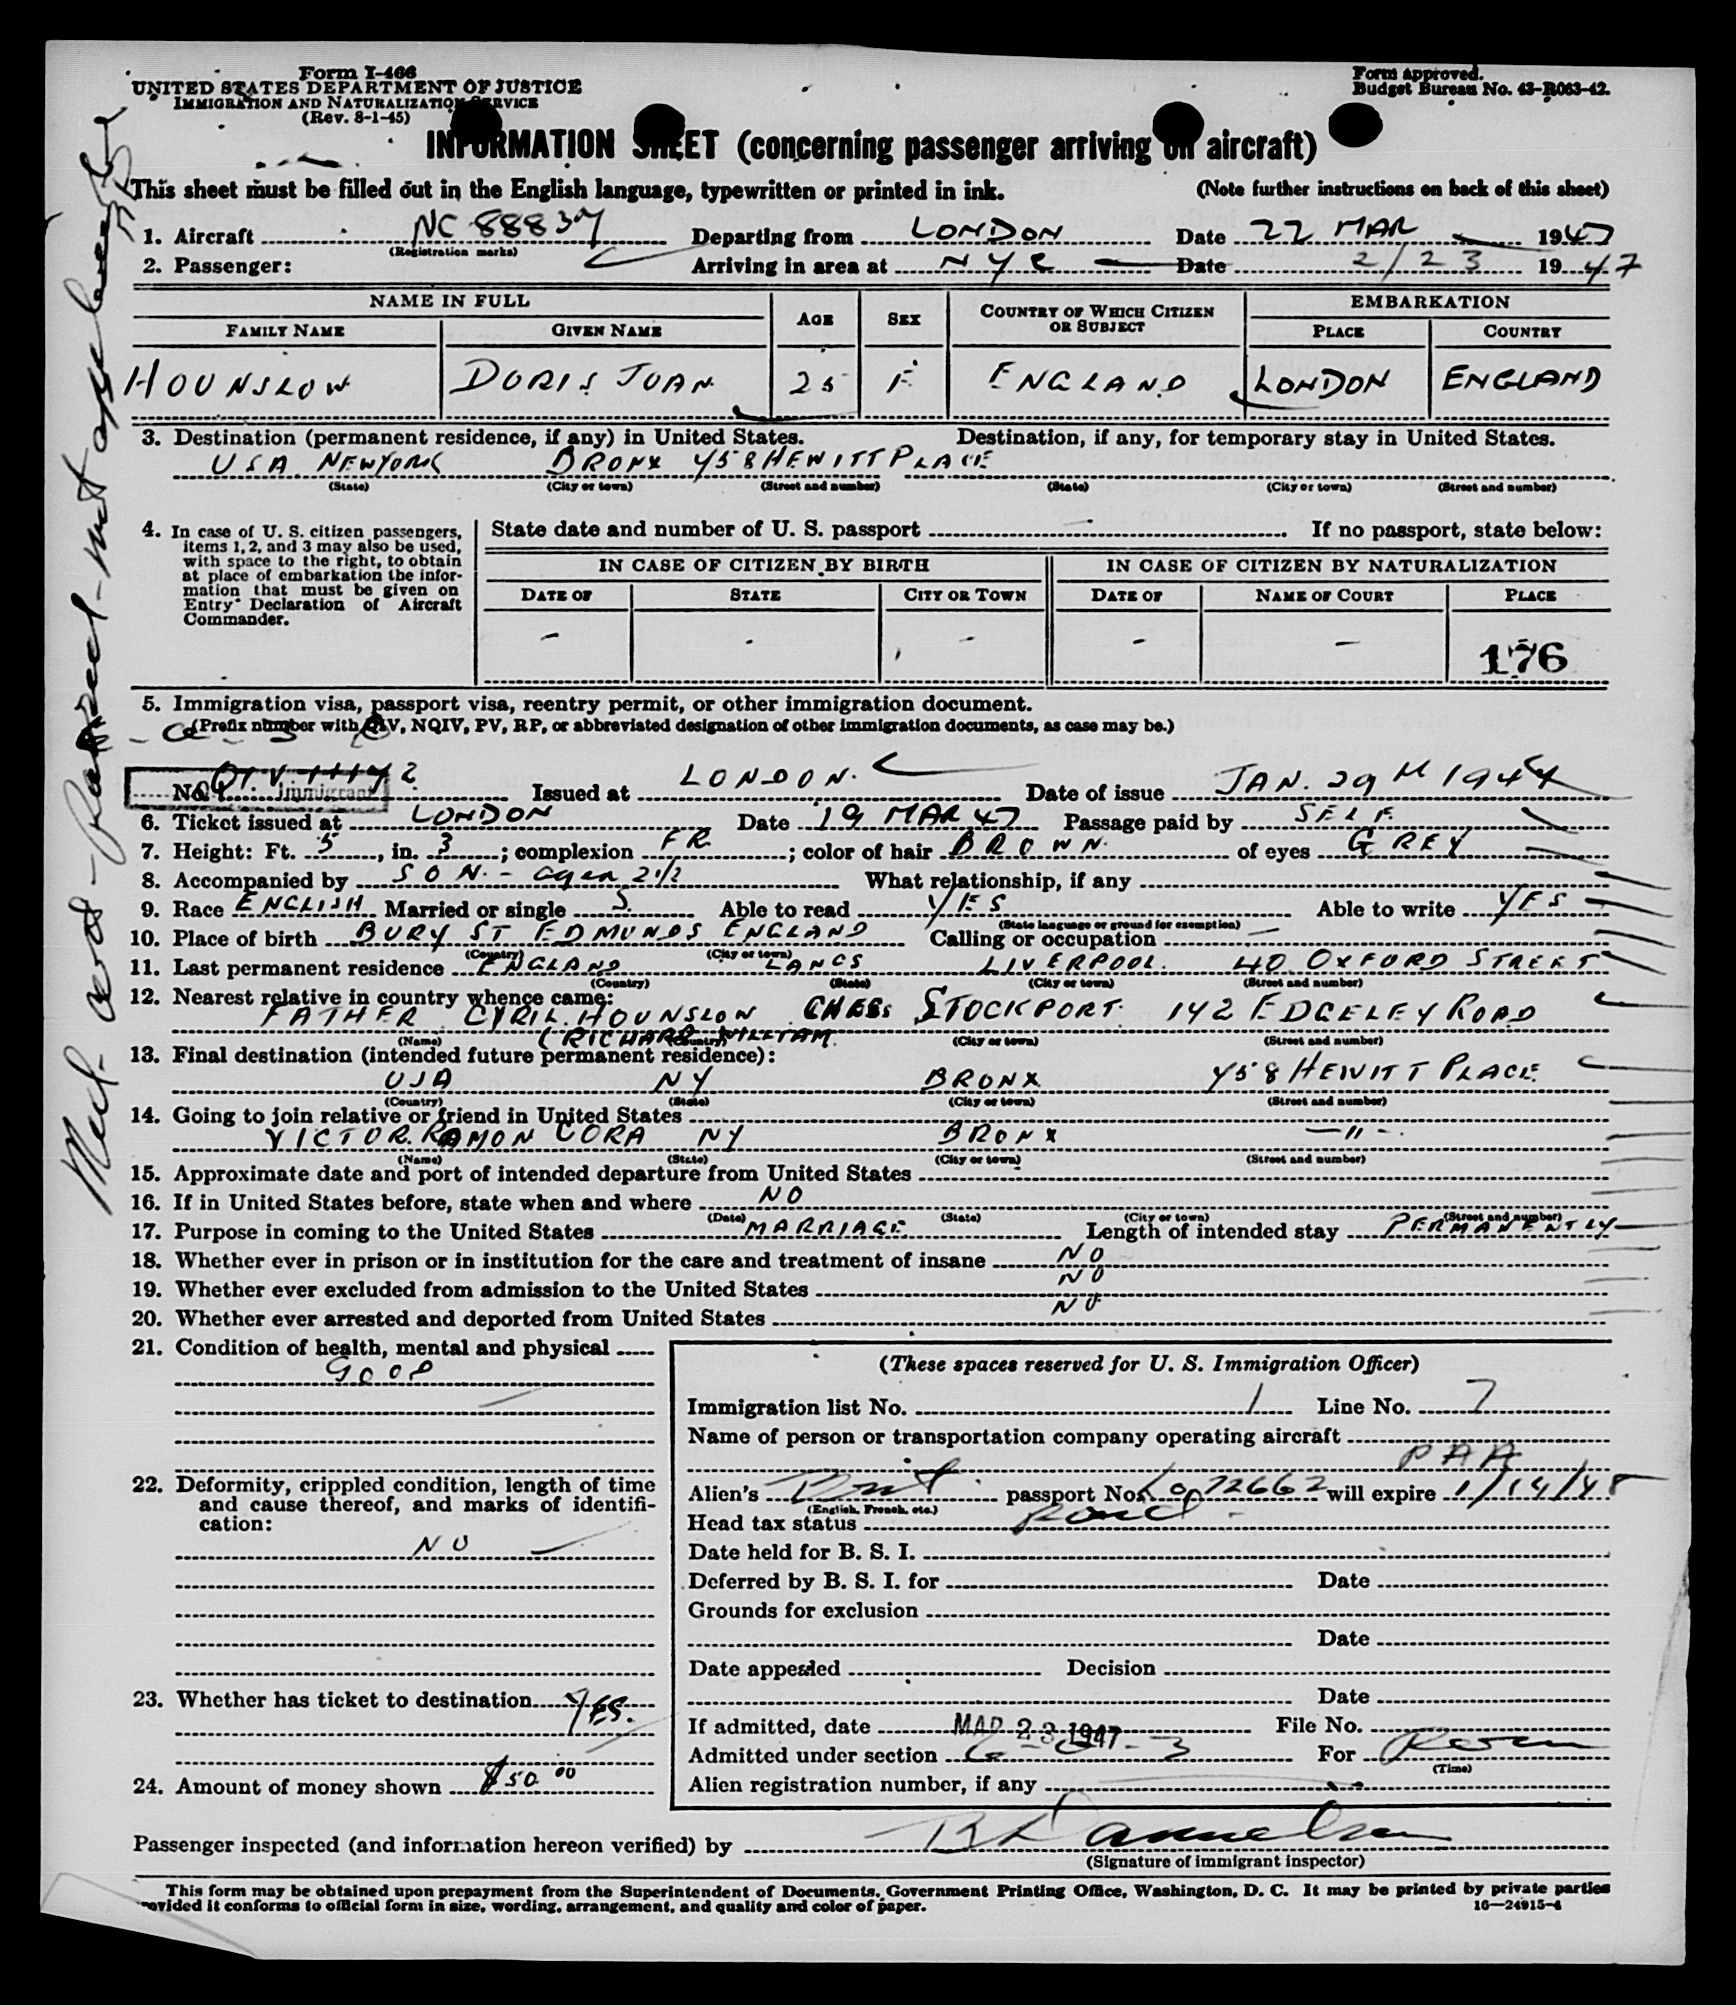 Form I-466
UNITED STATES DEPARTMENT OF JUSTICE
IMMIGRATION AND NATURALIZATION SERVICE
(Rev. 8-1-45)
Form approved.
Budget Bureau No. 43-R063-42.
INFORMATION SHEET (concerning passenger arriving on aircraft)
This sheet must be filled out in the English language, typewritten or printed in ink. (Note further instructions on back of this sheet)
1. Aircraft NC 88837 Departing from LONDON Date 22 MAR 1947
(Registration marks)
2. Passenger: Arriving in area at NYC Date 2/23 1947
NAME IN FULL AGE SEX COUNTRY OF WHICH CITIZEN OR SUBJECT EMBARKATION
FAMILY NAME GIVEN NAME PLACE COUNTRY
HOUNSLOW DORIS JOAN 25 F ENGLAND LONDON ENGLAND
3. Destination (permanent residence, if any) in United States. Destination, if any, for temporary stay in United States.
USA NEWYORK BRONX 758 HEWITT PLACE
(State) (City or town) (Street and number) (State) (City or town) (Street and number)
4. In case of U. S. citizen passengers, items 1, 2, and 3 may also be used, with space to the right, to obtain at place of embarkation the information that must be given on Entry Declaration of Aircraft Commander.
State date and number of U. S. passport - If no passport, state below:
IN CASE OF CITIZEN BY BIRTH IN CASE OF CITIZEN BY NATURALIZATION
DATE OF STATE CITY OR TOWN DATE OF NAME OF COURT PLACE
- - - - -
176
5. Immigration visa, passport visa, reentry permit, or other immigration document.
(Prefix number with QIV, NQIV, PV, RP, or abbreviated designation of other immigration documents, as case may be.)
No. QIV Immigrant Issued at LONDON. Date of issue JAN. 29
6. Ticket issued at LONDON Date 19 MAR 47 Passage paid by SELF
7. Height: Ft. 5, in. 3; complexion FR. ; color of hair BROWN. of eyes GREY
8. Accompanied by SON. - aged 2 1/2 What relationship, if any
9. Race ENGLISH Married or single S. Able to read YES Able to write YES
(State language or ground for exemption)
10. Place of birth BURY ST EDMUNDS ENGLAND Calling or occupation -
(Country) (City or town)
11. Last permanent residence ENGLAND LANCS LIVERPOOL. 40 OXFORD STREET
(Country) (State) (City or town) (Street and number)
12. Nearest relative in country whence came:
FATHER CYRIL HOUNSLOW CHES. STOCKPORT. 142 EDGELEY ROAD
(RICHARD WILLIAM.
(Name) (Country) (City or town) (Street and number)
13. Final destination (intended future permanent residence):
USA NY BRONX 758 HEWITT PLACE
(Country) (State) (City or town) (Street and number)
14. Going to join relative or friend in United States
VICTOR. RAMON CORA NY BRONX — " —.
(Name) (State) (City or town) (Street and number)
15. Approximate date and port of intended departure from United States
16. If in United States before, state when and where NO
(Date) (State) (City or town) (Street and number)
17. Purpose in coming to the United States MARRIAGE Length of intended stay PERMANENTLY
18. Whether ever in prison or in institution for the care and treatment of insane NO
19. Whether ever excluded from admission to the United States NO
20. Whether ever arrested and deported from United States NO
21. Condition of health, mental and physical
GOOD
22. Deformity, crippled condition, length of time and cause thereof, and marks of identification:
NO
23. Whether has ticket to destination YES.
24. Amount of money shown $50.00
(These spaces reserved for U. S. Immigration Officer)
Immigration list No. 1 Line No. 7
Name of person or transportation company operating aircraft
PAA
Alien's Brit passport No. 72662 will expire 1/14/48
(English, French, etc.)
Head tax status
Date held for B. S. I.
Deferred by B. S. I. for Date
Grounds for exclusion
Date
Date appealed Decision
Date
If admitted, date MAR 23 1947 File No.
Admitted under section 6-3 For
(Time)
Alien registration number, if any
Passenger inspected (and information hereon verified) by
(Signature of immigrant inspector)
This form may be obtained upon prepayment from the Superintendent of Documents, Government Printing Office, Washington, D. C. It may be printed by private parties
provided it conforms to official form in size, wording, arrangement, and quality and color of paper. 16—24915-4
Med. cert